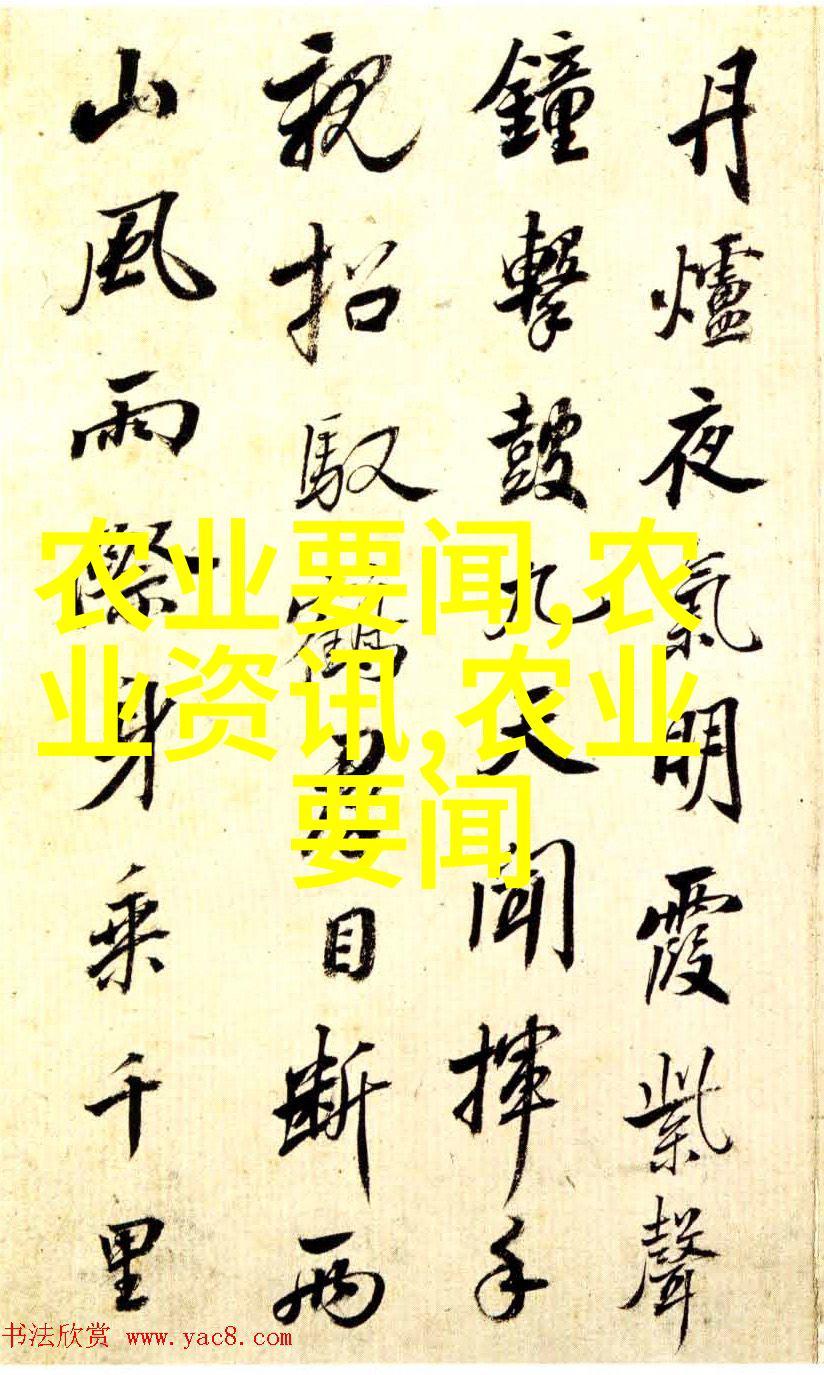 丹爐夜氣明霞紫聲
鐘擊鼓九天聞揮手
親招馭鶴目斷兩
山風雨際身乘千里
农业要闻,农
业资讯,农业
要闻
书法欣赏 www.yac8.com